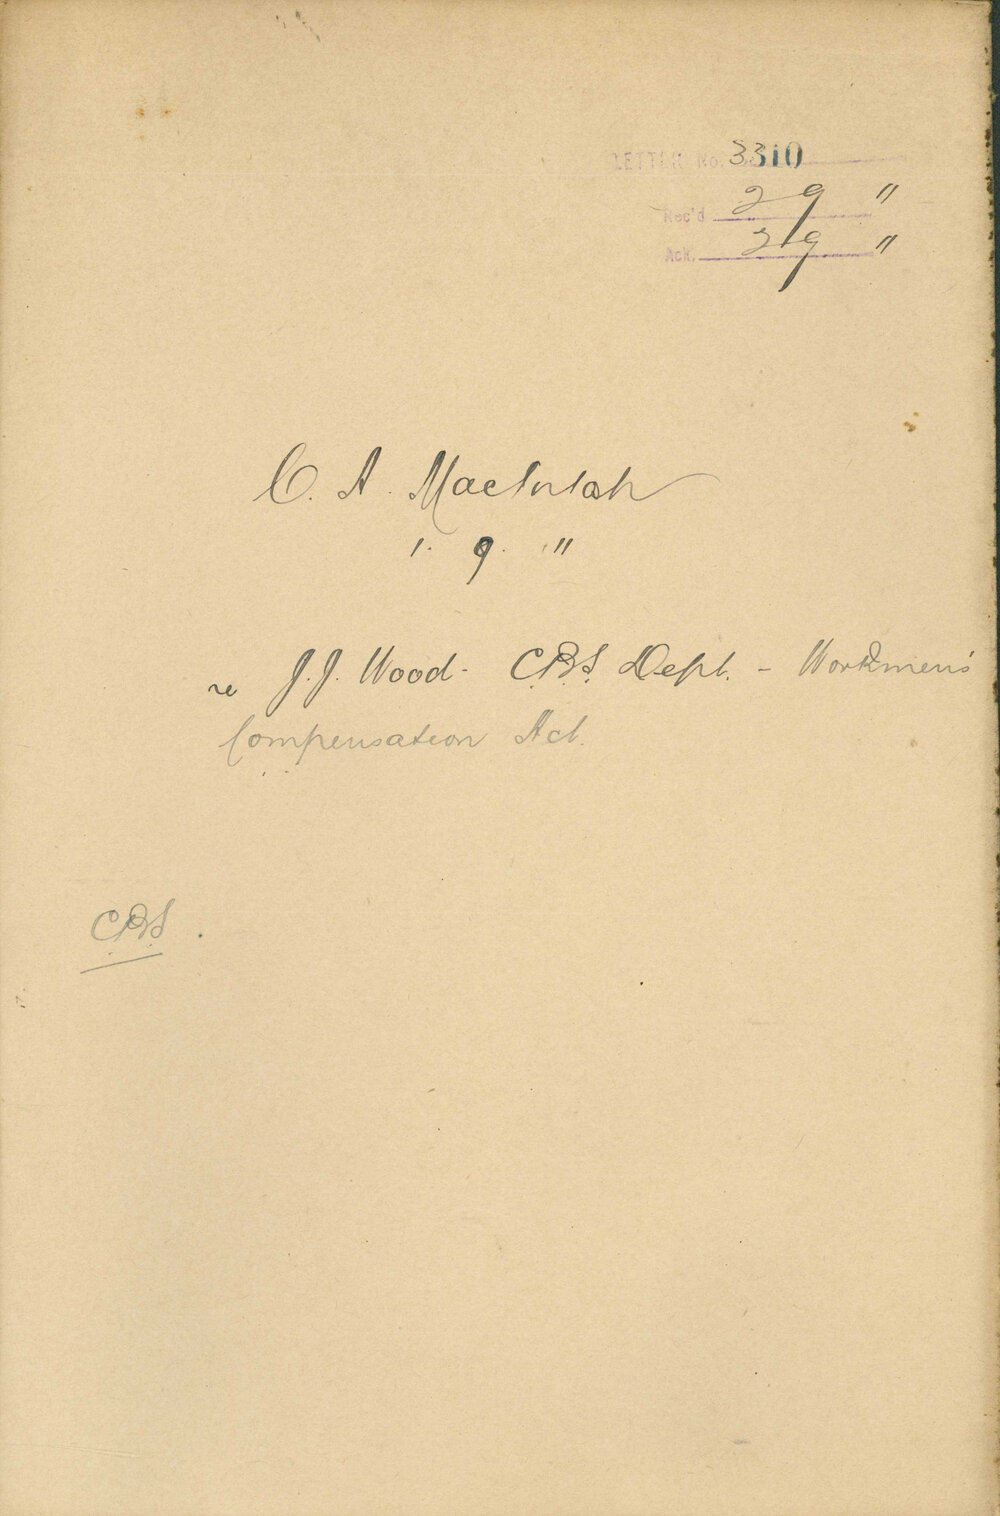 LETTER No. 3310
Rec'd 2 9 11
Ack. 2 9 11
C. A. MacIntosh
1. 9. 11
re J.J. Wood - C.P.S. Dept. - Workmen's
Compensation Act.
C.P.S.